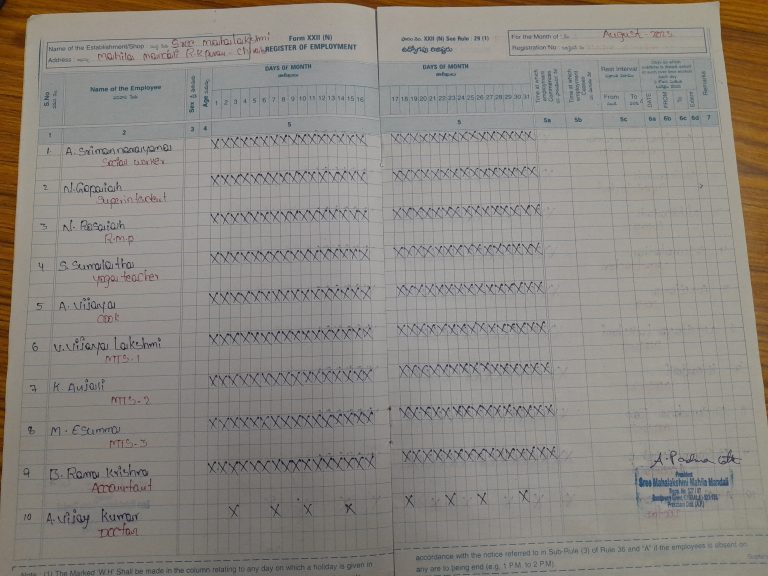 Form XXII (N)
REGISTER OF EMPLOYMENT
Name of the Establishment/Shop Sree mahalakshmi
Address mahila mandali
XXII (N) See Rule - 29 (1)
ఉద్యోగపు రిజిష్టరు
For the Month of August - 2023
Registration No
S.No
Name of the Employee
Sex
Age
DAYS OF MONTH
1 2 3 4 5 6 7 8 9 10 11 12 13 14 15 16
DAYS OF MONTH
17 18 19 20 21 22 23 24 25 26 27 28 29 30 31
Time at which employment
Time at which employment
Rest Interval
From To
DATE FROM To
Remarks
1 2 3 4 5 5 5a 5b 5c 6a 6b 6c 6d 7
1 A. Srimannarayana
Social worker
2 N. Gopaiah
Superintendent
3 N. Rosaiah
R.m.p
4 S. Sumalatha
Yoga teacher
5 A. Vijaya
Cook
6 V. Vijaya Lakshmi
MTS-1
7 K. Anjali
MTS-2
8 M. Esumma
MTS-3
9 B. Rama Krishna
Accountant
10 A. Vijay Kumar
Doctor
President
Sree Mahalakshmi Mahila Mandali
Note : (1) The Marked 'W.H' Shall be made in the column relating to any day on which a holiday is given in
accordance with the notice referred to in Sub-Rule (3) of Rule 36 and "A" if the employees is absent on
any are to being end (e.g. 1 P.M. to 2 P.M)